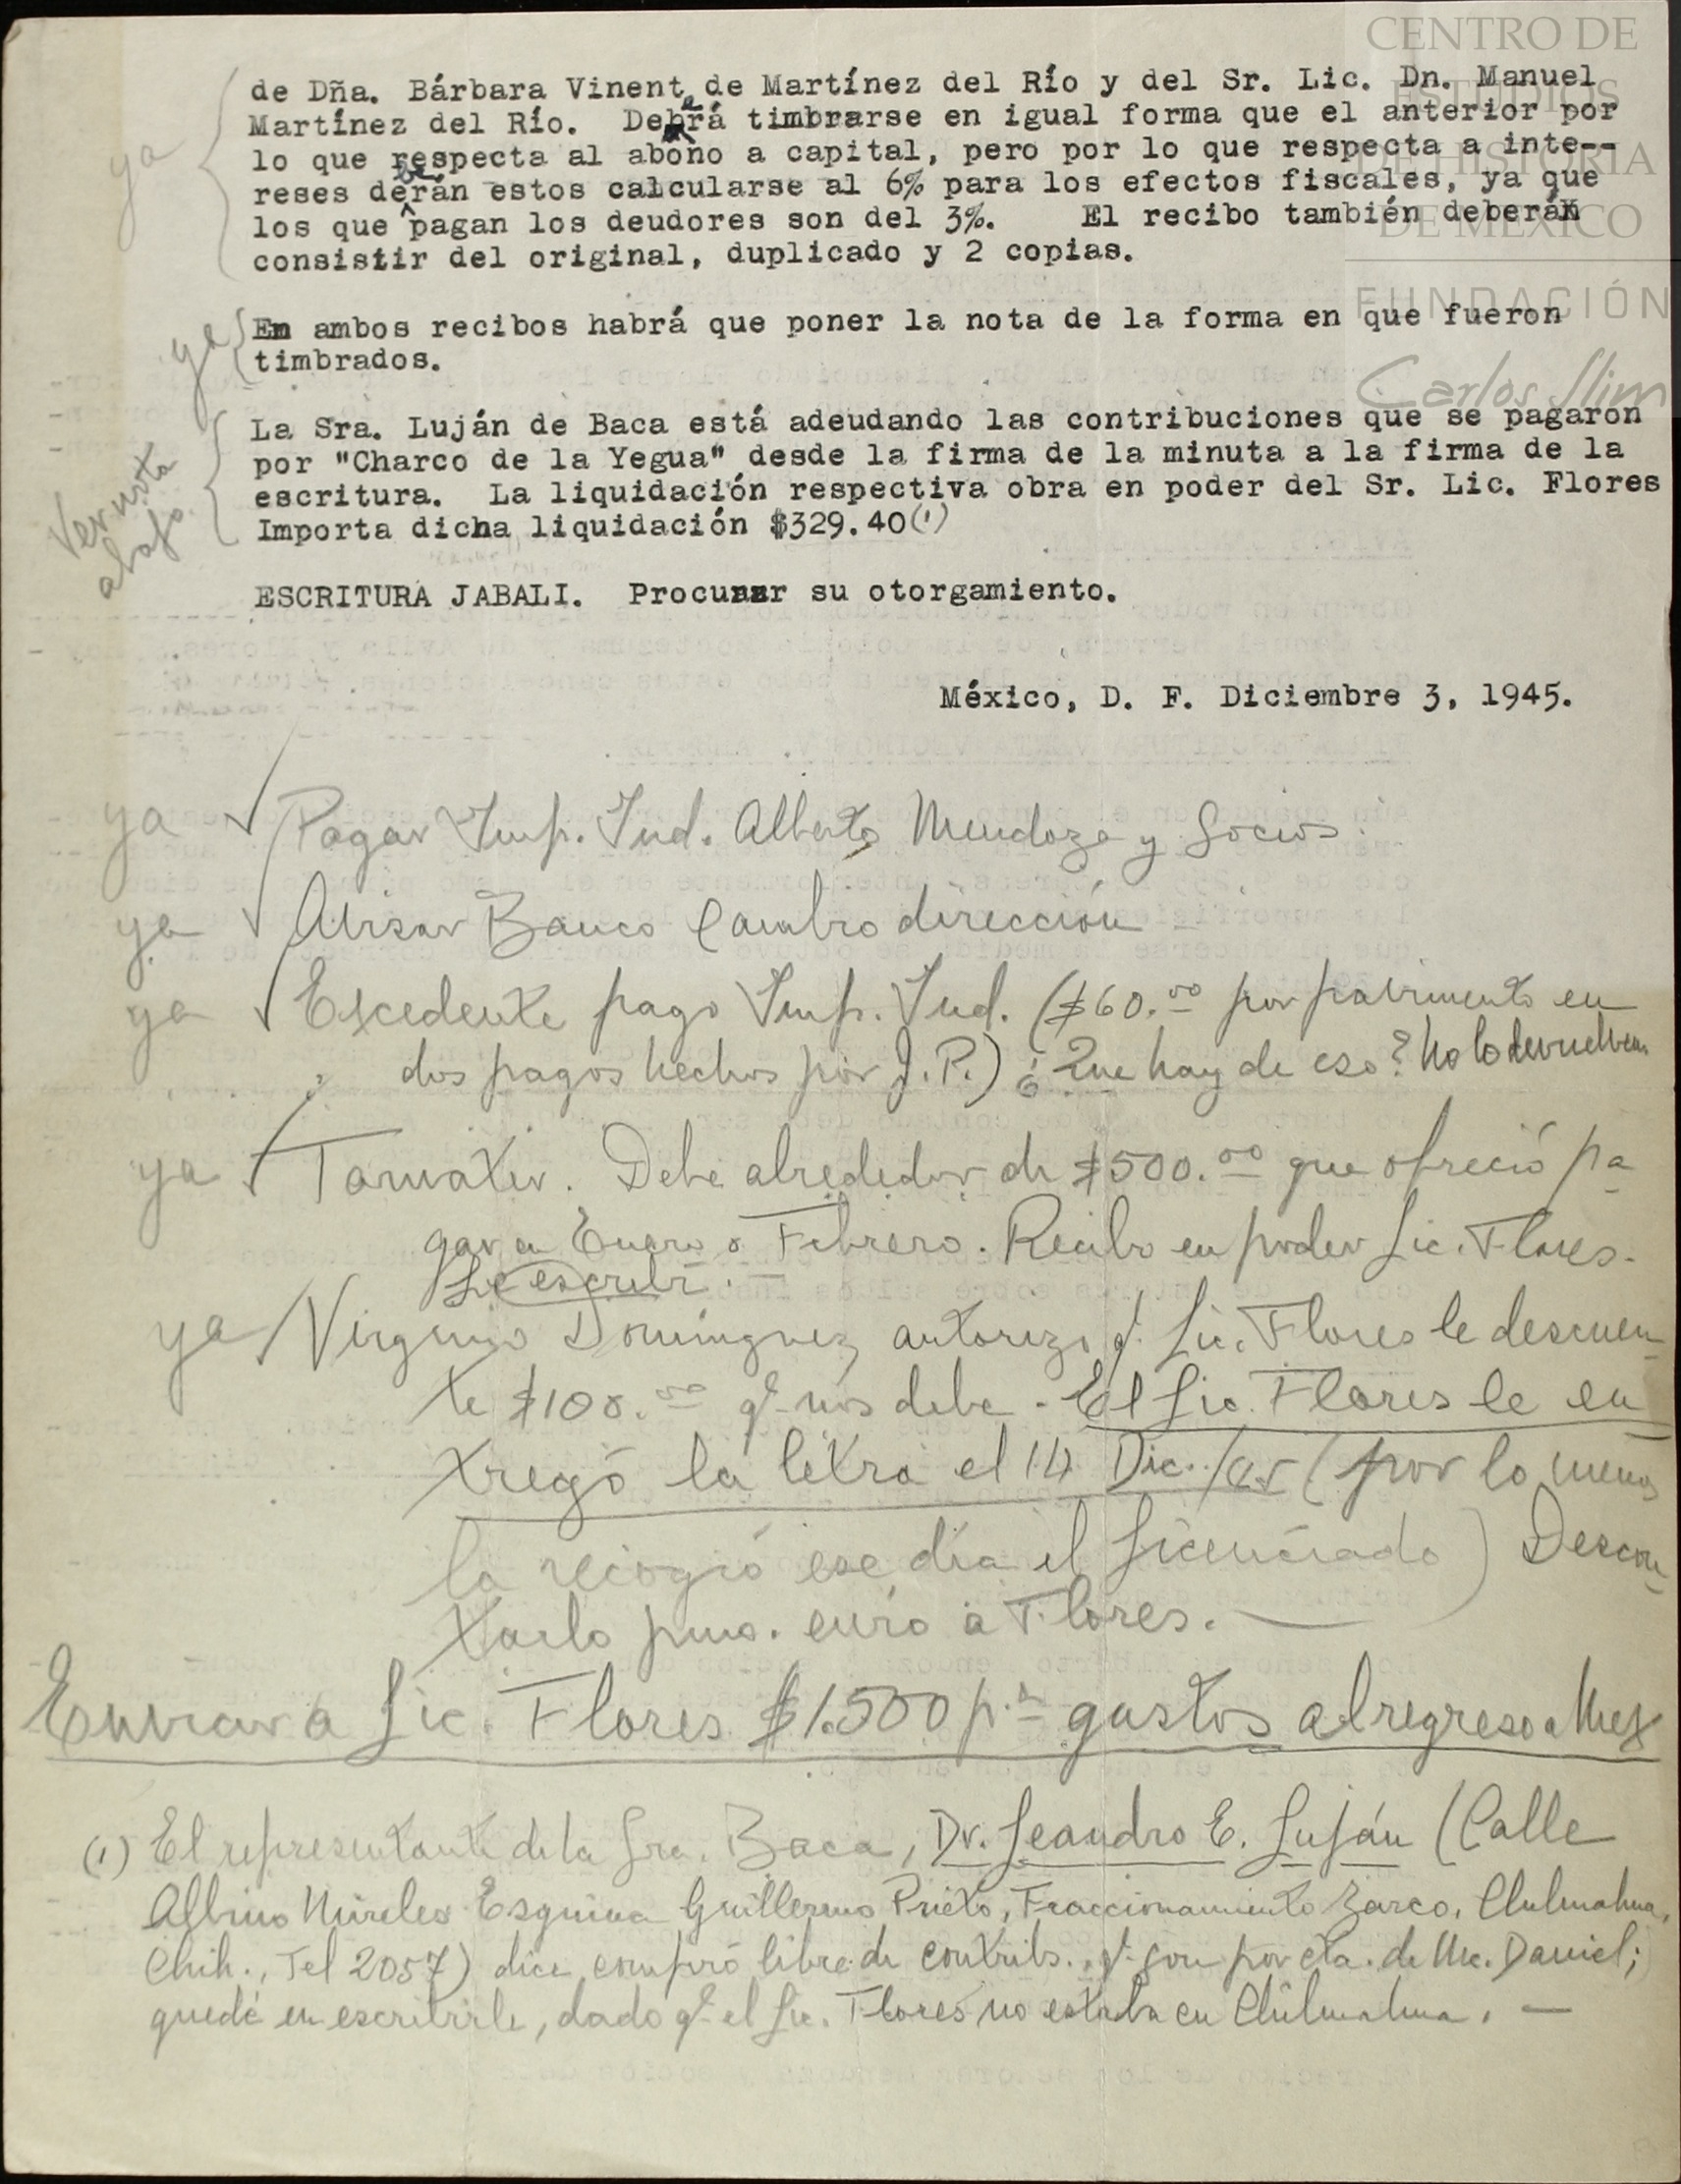 CENTRO DE
ESTUDIOS
DE HISTORIA
DE MÉXICO
FUNDACIÓN
Carlos Slim
de Dña. Bárbara Vinent de Martínez del Río y del Sr. Lic. Dn. Manuel
Martínez del Río. Deberá timbrarse en igual forma que el anterior por
ya
lo que respecta al abono a capital, pero por lo que respecta a inte--
reses deberán estos calcularse al 6% para los efectos fiscales, ya que
los que pagan los deudores son del 3%. El recibo también deberá
consistir del original, duplicado y 2 copias.
ya
En ambos recibos habrá que poner la nota de la forma en que fueron
timbrados.
Ver nota
abajo.
La Sra. Luján de Baca está adeudando las contribuciones que se pagaron
por "Charco de la Yegua" desde la firma de la minuta a la firma de la
escritura. La liquidación respectiva obra en poder del Sr. Lic. Flores
Importa dicha liquidación $329.40(1)
ESCRITURA JABALI. Procurar su otorgamiento.
México, D. F. Diciembre 3, 1945.
ya Pagar Imp. Ind. Alberto Mendoza y Socios.
ya Avisar Banco Cambio dirección
ya Excedente pago Imp. Ind. ($60.00 por pavimento en
dos pagos hechos por J. P.) ¿Que hay de eso? No lo devuelven
ya Debe alrededor de $500.00 que ofreció pa-
gar en Enero o Febrero. Recibo en poder Lic. Flores.
Le escribí.
ya Virginio Domínguez autorizó q. Lic. Flores le descuen-
te $100.00 q. nos debe. El Lic. Flores le en-
tregó la letra el 14 Dic./45 (por lo menos
la recogió ese día el Licenciado) Descon-
tarlo pmo. envío a Flores.
Enviar a Lic. Flores $1.500 p.a gastos al regreso a Mex
(1) El representante de la Sra. Baca, Dr. Leandro E. Luján (Calle
Albino Mireles Esquina Guillermo Prieto, Fraccionamiento Zarco, Chihuahua,
Chih., Tel 2057) dice compró libre de contribs., q. son por cta. de Mc. Daniel;
quedé en escribirle, dado q. el Lic. Flores no estaba en Chihuahua. —